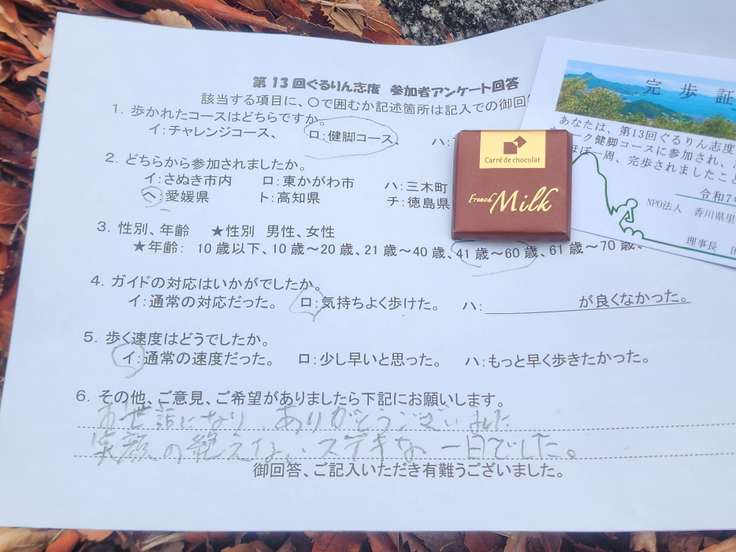 第13回ぐるりん志度 参加者アンケート回答
該当する項目に、〇で囲むか記述箇所は記入での御回
1. 歩かれたコースはどちらですか。
イ:チャレンジコース、 ロ:健脚コース、 ハ:
2. どちらから参加されましたか。
イ:さぬき市内 ロ:東かがわ市 ハ:三木町
ヘ:愛媛県 ト:高知県 チ:徳島県
3. 性別、年齢 ★性別 男性、女性
★年齢: 10歳以下、10歳～20歳、21歳～40歳、41歳～60歳、61歳～70歳、
4. ガイドの対応はいかがでしたか。
イ:通常の対応だった。 ロ:気持ちよく歩けた。 ハ: が良くなかった。
5. 歩く速度はどうでしたか。
イ:通常の速度だった。 ロ:少し早いと思った。 ハ:もっと早く歩きたかった。
6. その他、ご意見、ご希望がありましたら下記にお願いします。
お世話になり、ありがとうございました
笑顔の絶えないステキな一日でした。
御回答、ご記入いただき有難うございました。
Carré de chocolat
French Milk
完歩証
あなたは、第13回ぐるりん志度
ーク健脚コースに参加され、
ほぼ一周、完歩されましたこと
令和7
NPO法人 香川県里
理事長